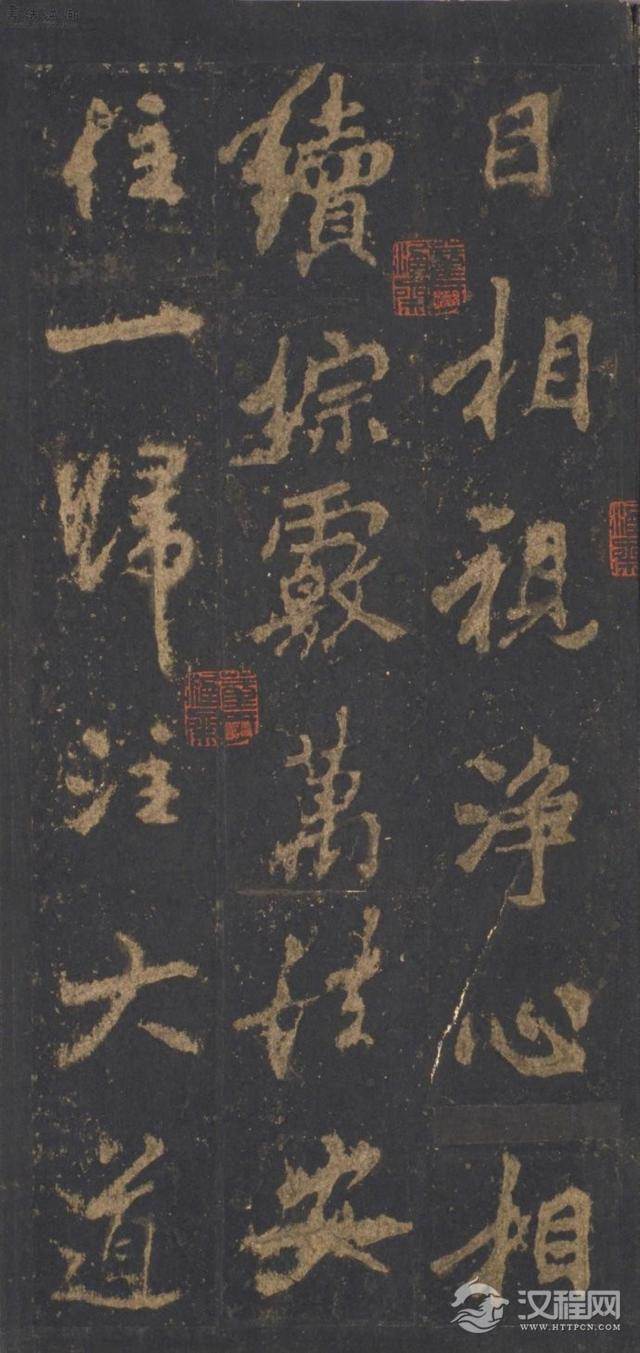 目相視淨心相
續綜覈萬法安
住一歸注大道
汉程网
WWW.HTTPCN.COM